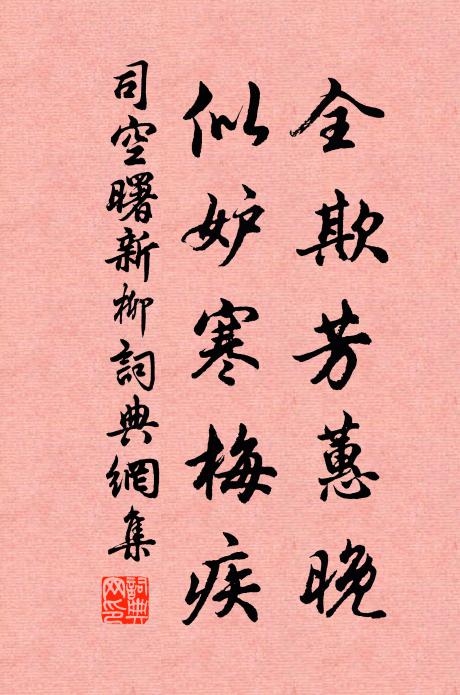 全欺芳蕙晚
似妒寒梅疾
司空曙新柳詞典網集
詞典網印